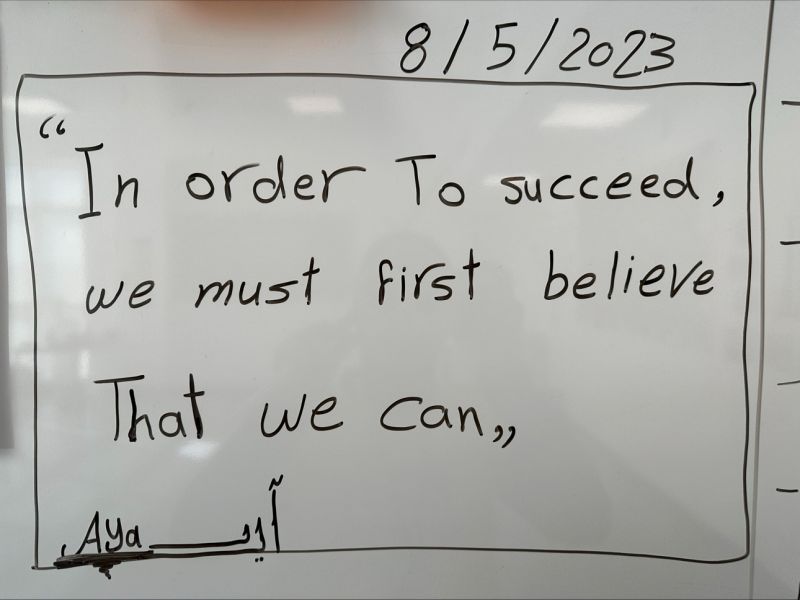 8/5/2023
“In order To succeed,
we must first believe
That we can,,
Aya